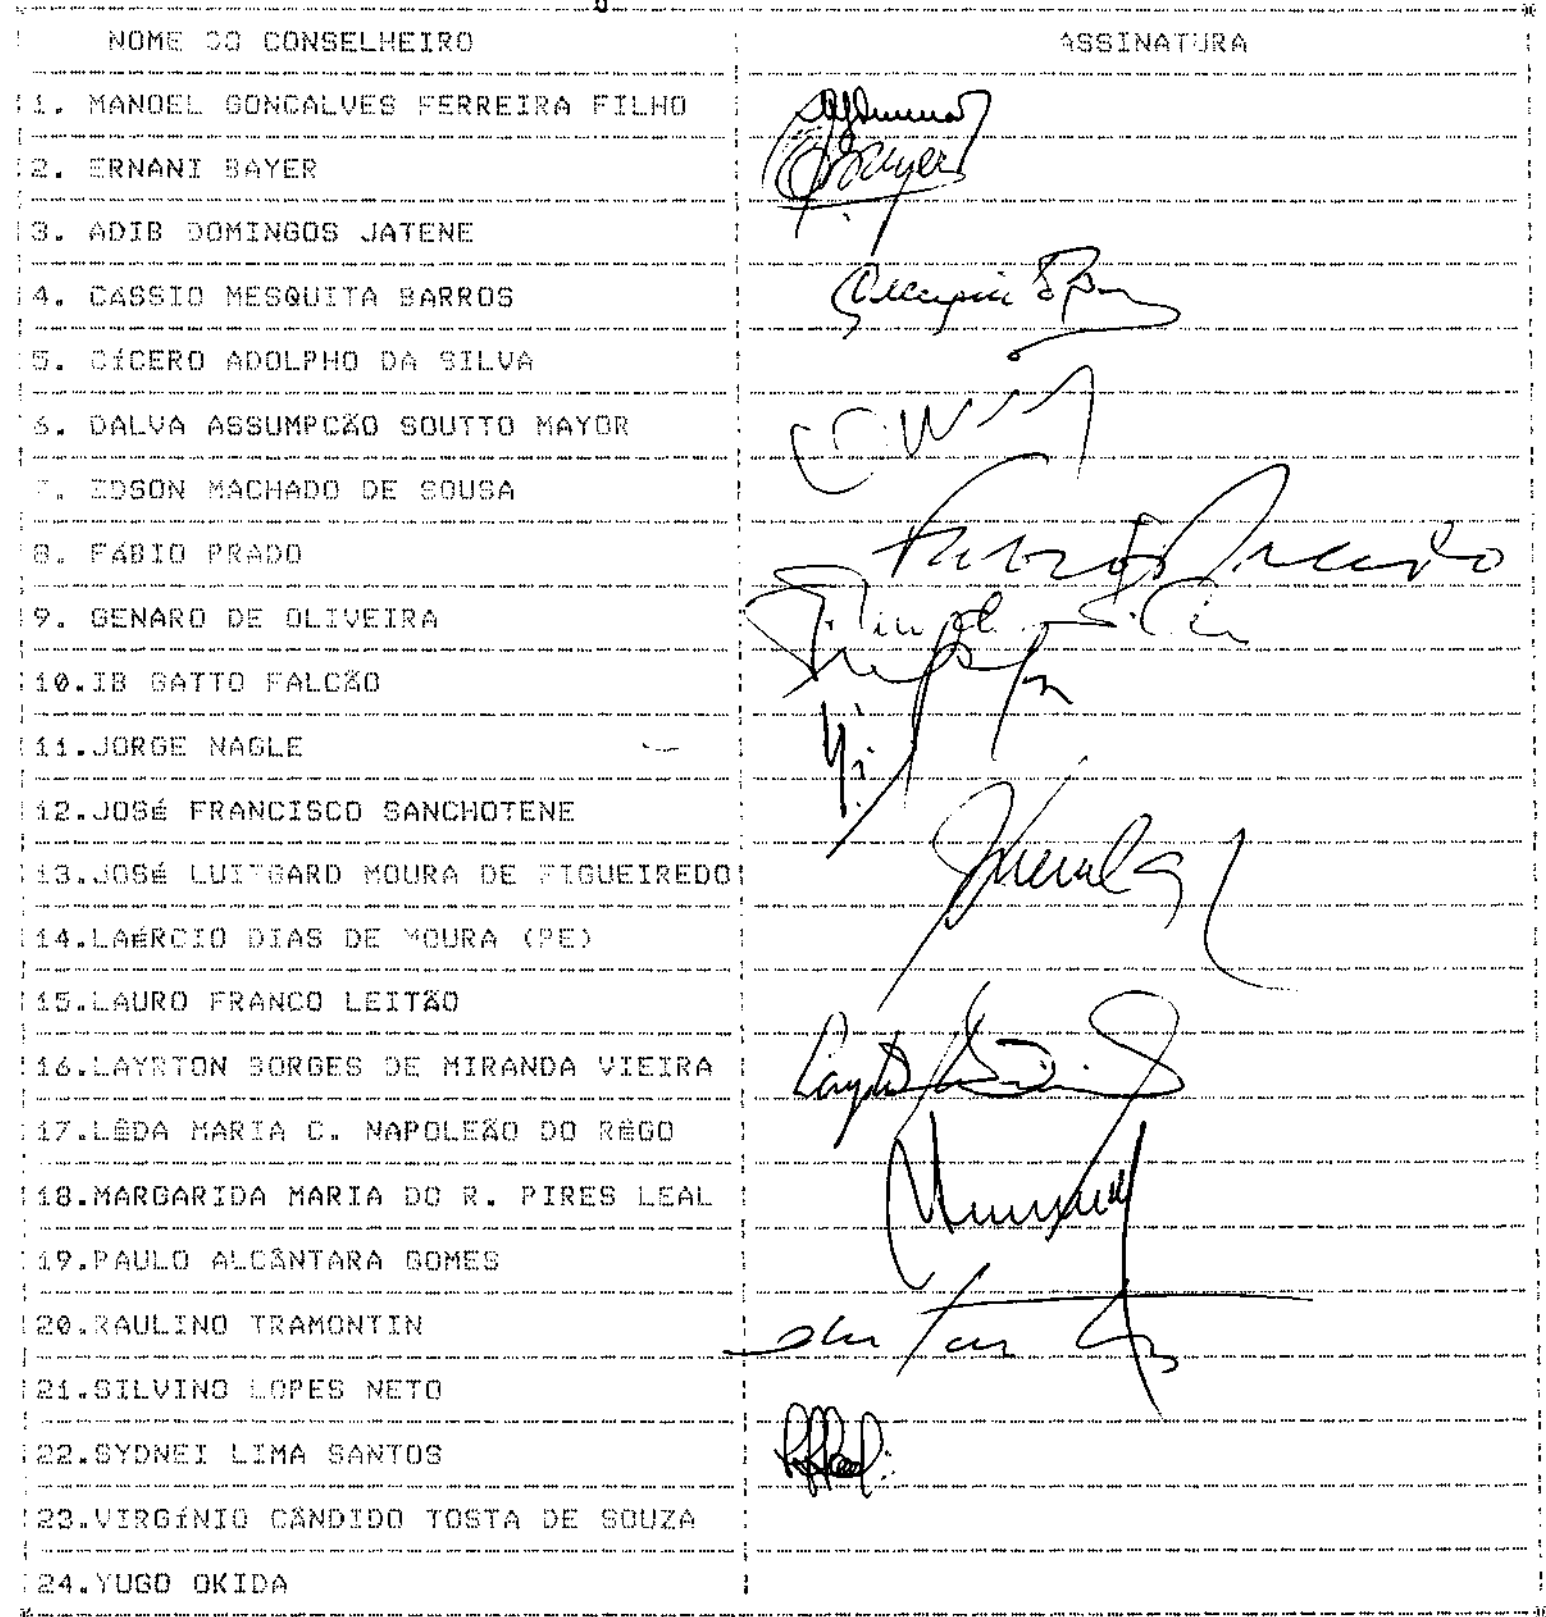 NOME DO CONSELHEIRO ASSINATURA
1. MANOEL GONCALVES FERREIRA FILHO
2. ERNANI BAYER Bayer
3. ADIB DOMINGOS JATENE
4. CASSIO MESQUITA BARROS
5. CÍCERO ADOLPHO DA SILVA
6. DALVA ASSUMPCÃO SOUTTO MAYOR
7. EDSON MACHADO DE SOUSA
8. FÁBIO PRADO Fabio Prado
9. GENARO DE OLIVEIRA
10.IB GATTO FALCÃO
11.JORGE NAGLE
12.JOSÉ FRANCISCO SANCHOTENE
13.JOSÉ LUITGARD MOURA DE FIGUEIREDO
14.LAÉRCIO DIAS DE MOURA (PE)
15.LAURO FRANCO LEITÃO
16.LAYRTON BORGES DE MIRANDA VIEIRA
17.LÊDA MARIA C. NAPOLEÃO DO RÊGO
18.MARGARIDA MARIA DO R. PIRES LEAL
19.PAULO ALCÂNTARA GOMES
20.RAULINO TRAMONTIN
21.SILVINO LOPES NETO
22.SYDNEI LIMA SANTOS
23.VIRGÍNIO CÂNDIDO TOSTA DE SOUZA
24.YUGO OKIDA